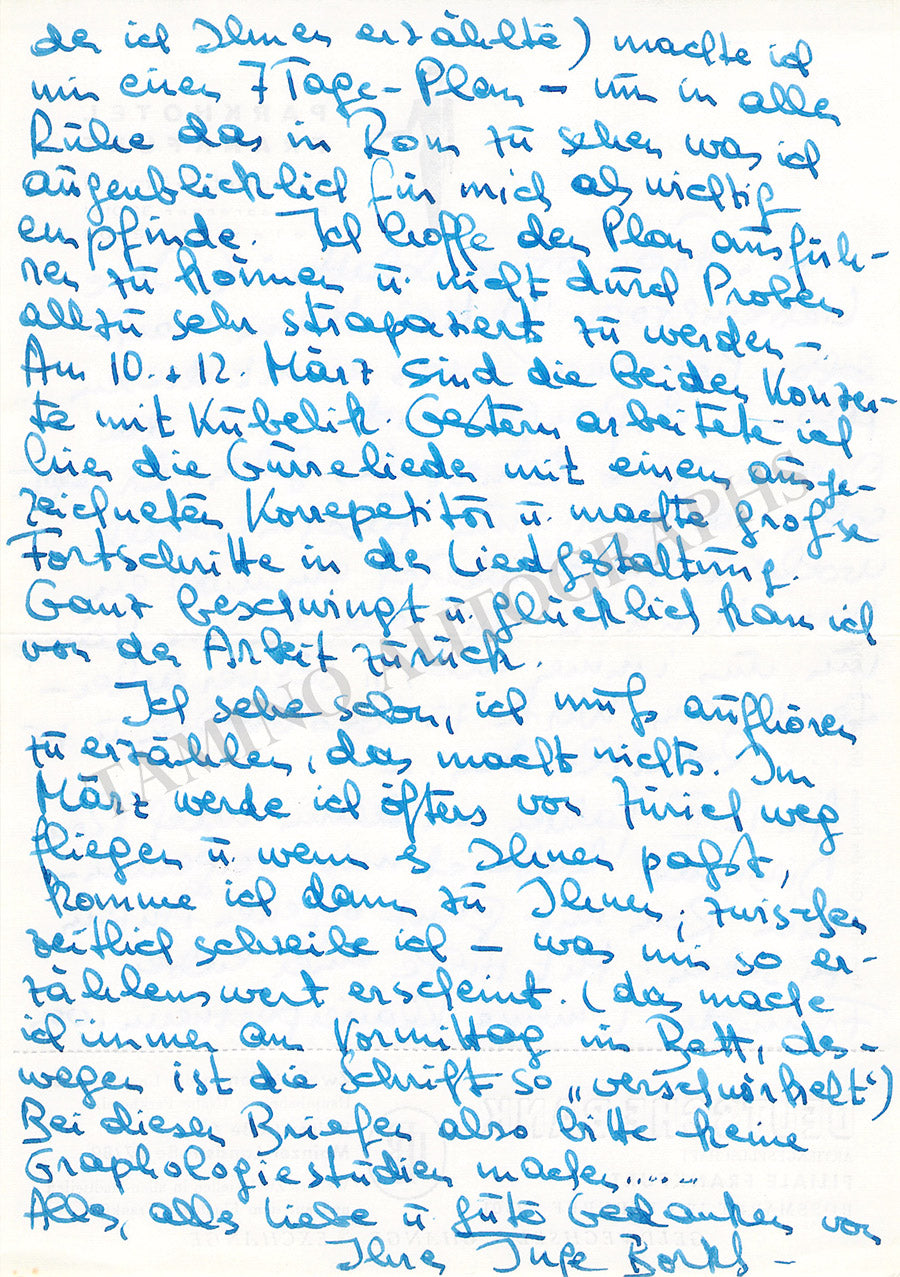 der ich Ihnen erzählte) machte ich
mir einen 7 Tage-Plan – um in aller
Ruhe das in Rom zu sehen was ich
augenblicklich für mich als wichtig
empfinde. Ich hoffe den Plan ausfüh-
ren zu können u. nicht durch Proben
allzu sehr strapaziert zu werden –
Am 10. + 12. März sind die beiden Konzer-
te mit Kubelik. Gestern arbeitete ich
hier die Gurrelieder mit einem ausge-
zeichneten Korrepetitor u. machte große
Fortschritte in der Liedgestaltung.
Ganz beschwingt u. glücklich kam ich
von der Arbeit zurück.
Ich sehe schon, ich muß aufhören
zu erzählen, das macht nichts. Im
März werde ich öfters von Zürich weg
fliegen u. wenn es Ihnen paßt,
komme ich dann zu Ihnen, zwischen
zeitlich schreibe ich – was mir so er-
zählenswert erscheint. (das mache
ich immer am Vormittag im Bett, des-
wegen ist die Schrift so „verschnörkelt")
Bei diesen Briefen also bitte keine
Graphologiestudien machen......
Alles, alles Liebe u. gute Gedanken von
Ihrer Inge Borkh –
TAMINO AUTOGRAPHS